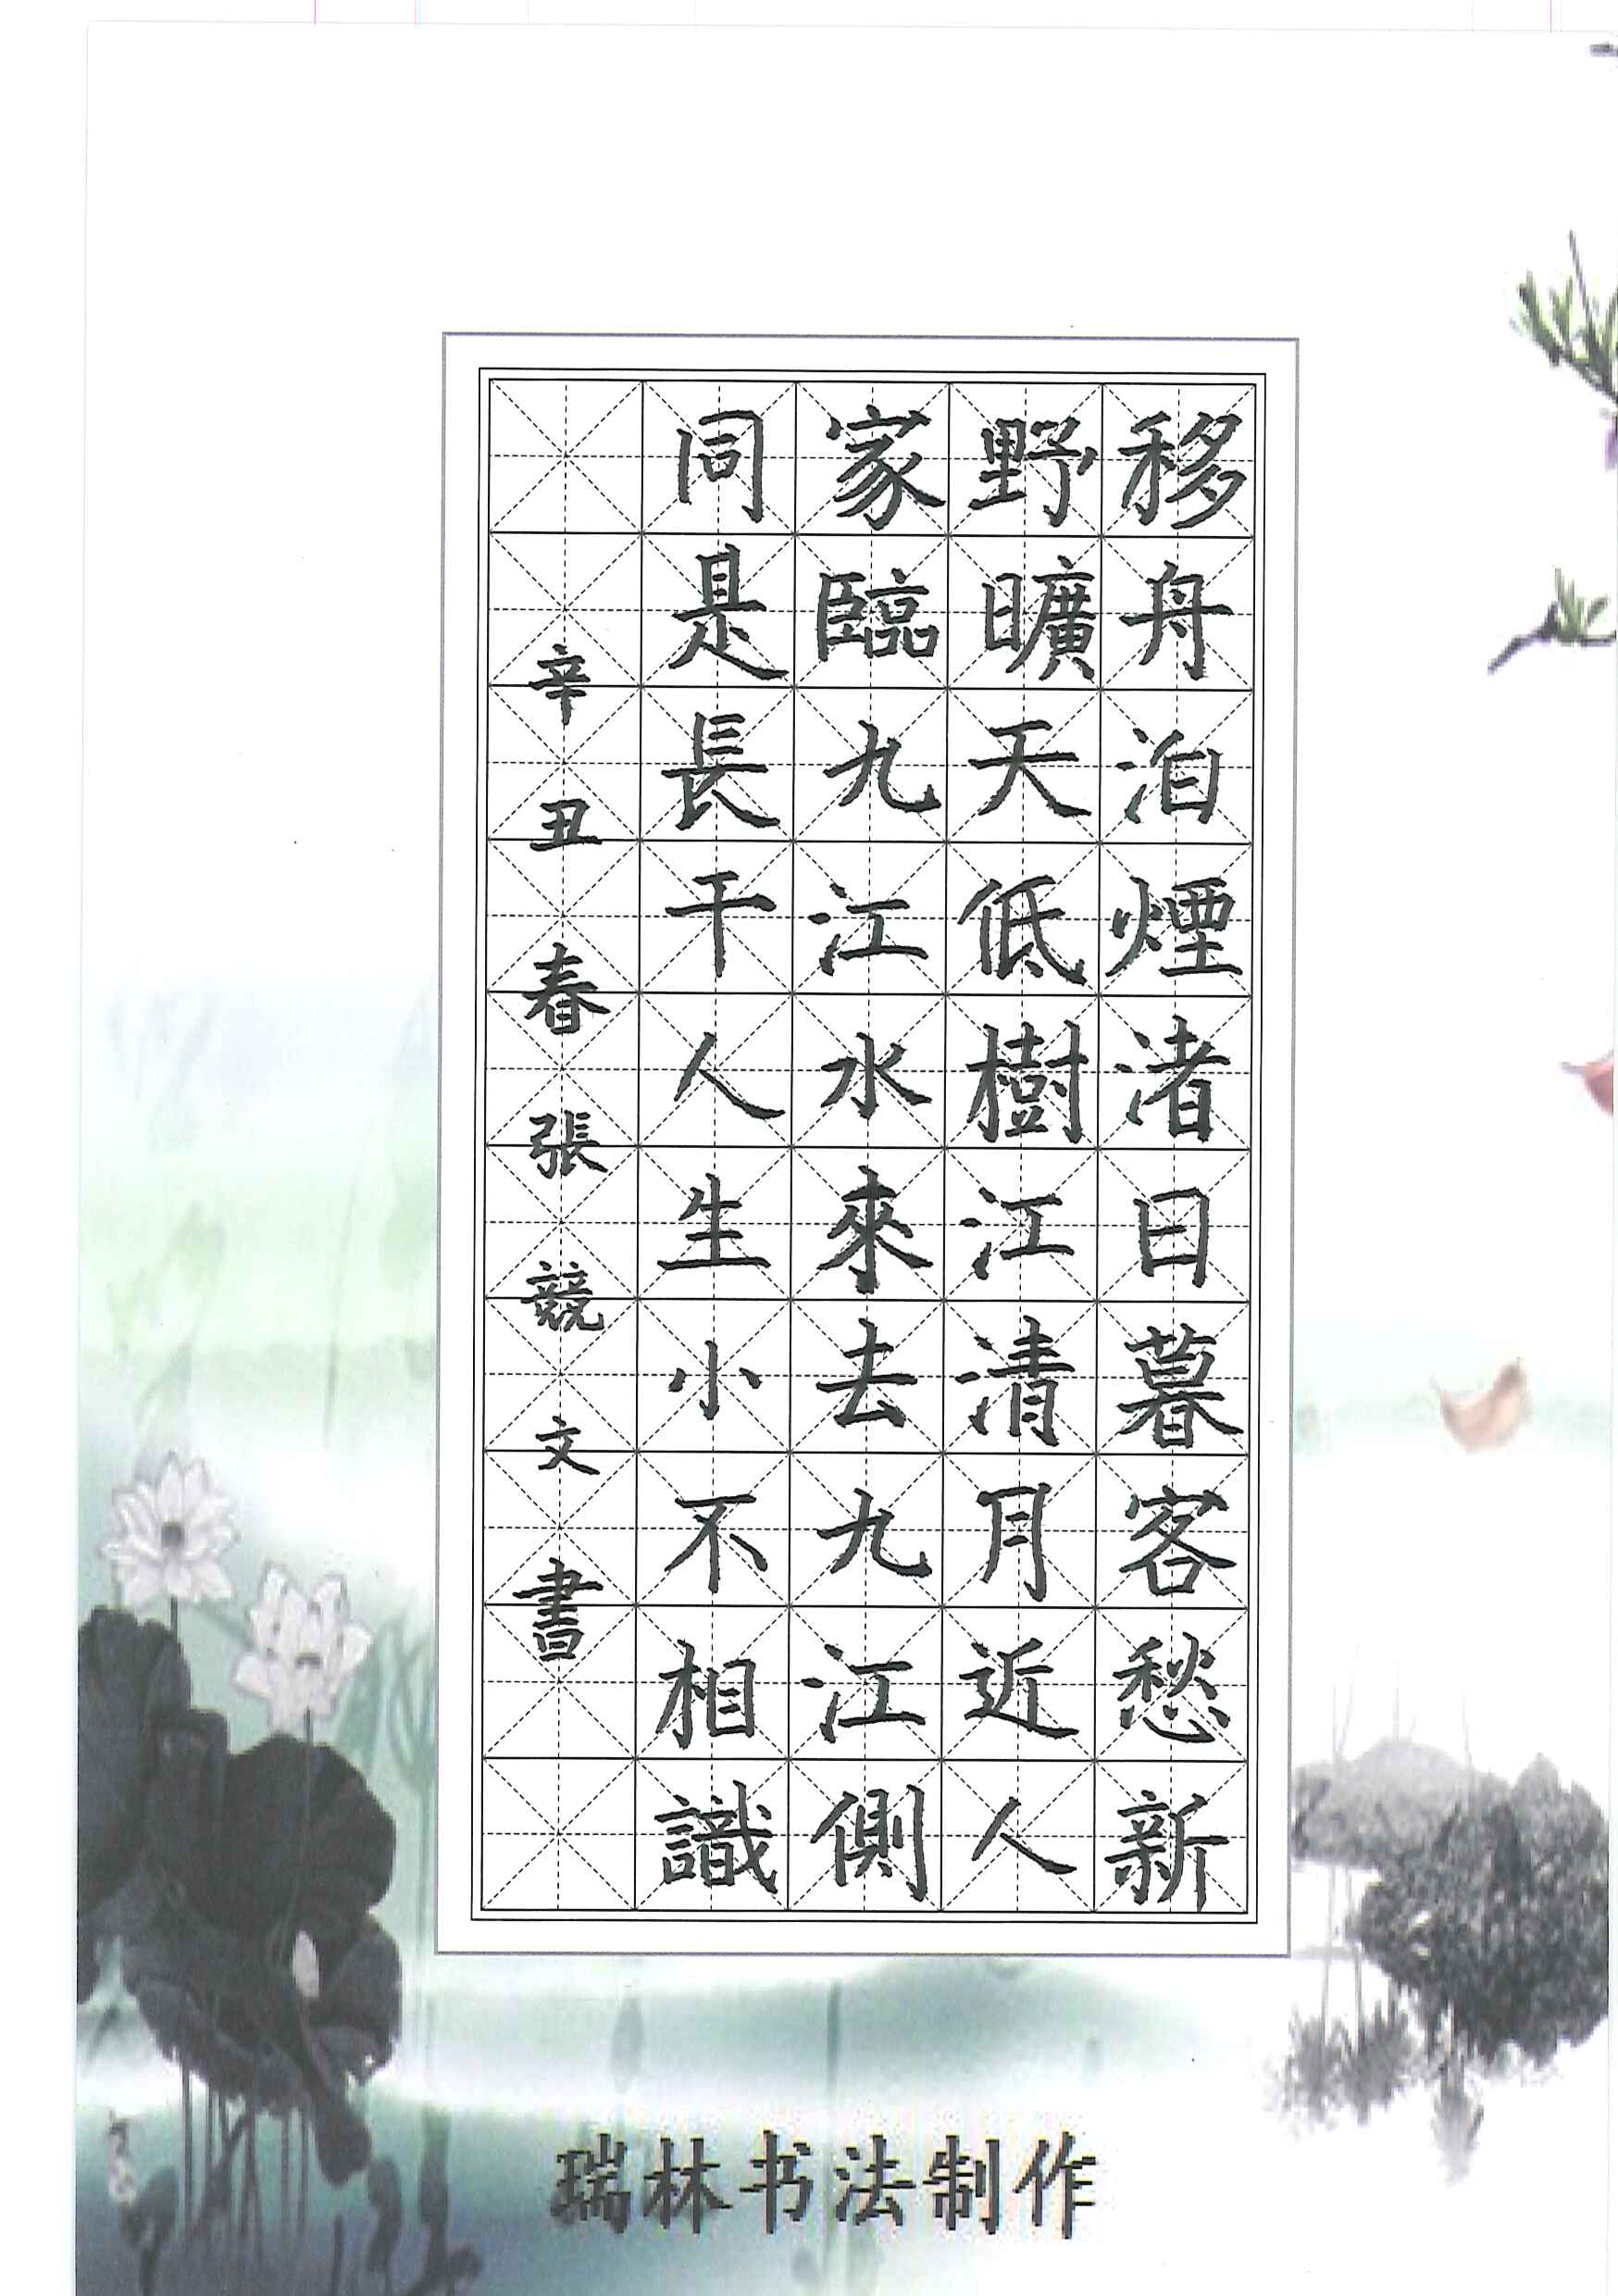 移舟泊煙渚日暮客愁新
野曠天低樹江清月近人
家臨九江水來去九江側
同是長干人生小不相識
辛丑春張競文書
瑞林书法制作